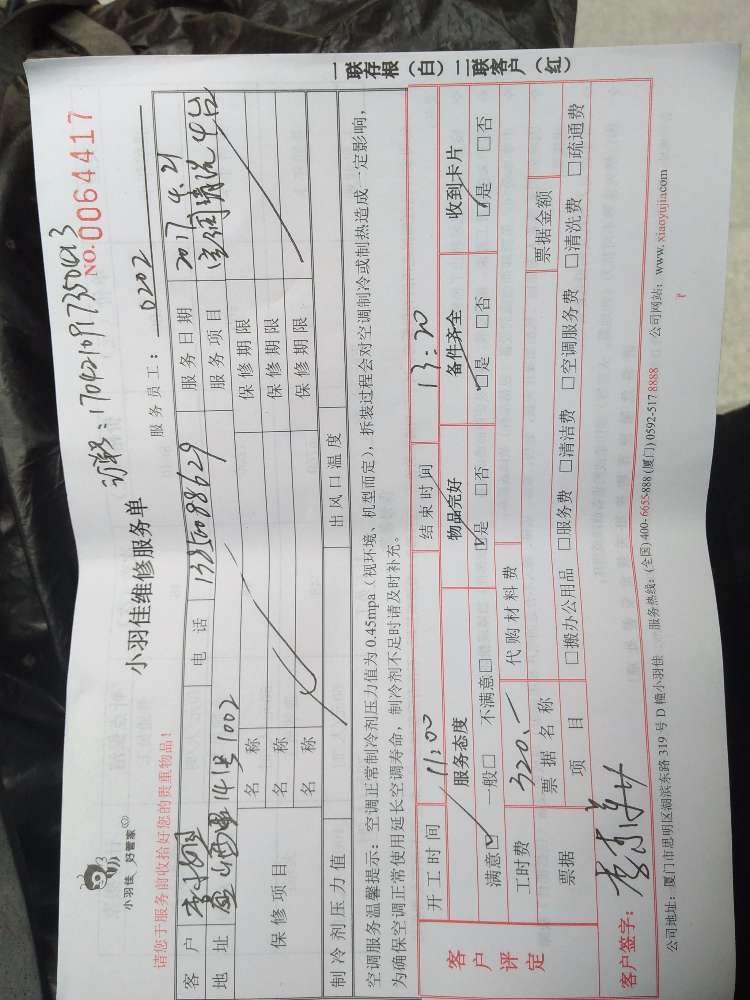 一联存根（白）二联客户（红）
小羽佳 好管家
小羽佳维修服务单
NO.0064417
请您于服务前收拾好您的贵重物品!
服务员工： 0202
客户 电话 服务日期 2017.4.21
地址 服务项目 空调清洗4台
保修项目 名称 保修期限
名称 保修期限
名称 保修期限
制冷剂压力值 出风口温度
空调服务温馨提示：空调正常制冷剂压力值为0.45mpa（视环境、机型而定），拆装过程会对空调制冷或制热造成一定影响，
为确保空调正常使用延长空调寿命，制冷剂不足时请及时补充。
客户评定 开工时间 11:00 结束时间 13:20
服务态度 物品完好 备件齐全 收到卡片
满意☑ 一般□ 不满意□ ☑是 □否 ☑是 □否 ☑是 □否
工时费 320.- 代购材料费
票据 票据名称 票据金额
项目 □搬办公用品 □服务费 □清洁费 □空调服务费 □清洗费 □疏通费
客户签字：
公司地址：厦门市思明区湖滨东路319号D幢小羽佳 服务热线：(全国)400-6655-888 (厦门)0592-517 8888 公司网站：www.xiaoyujia.com